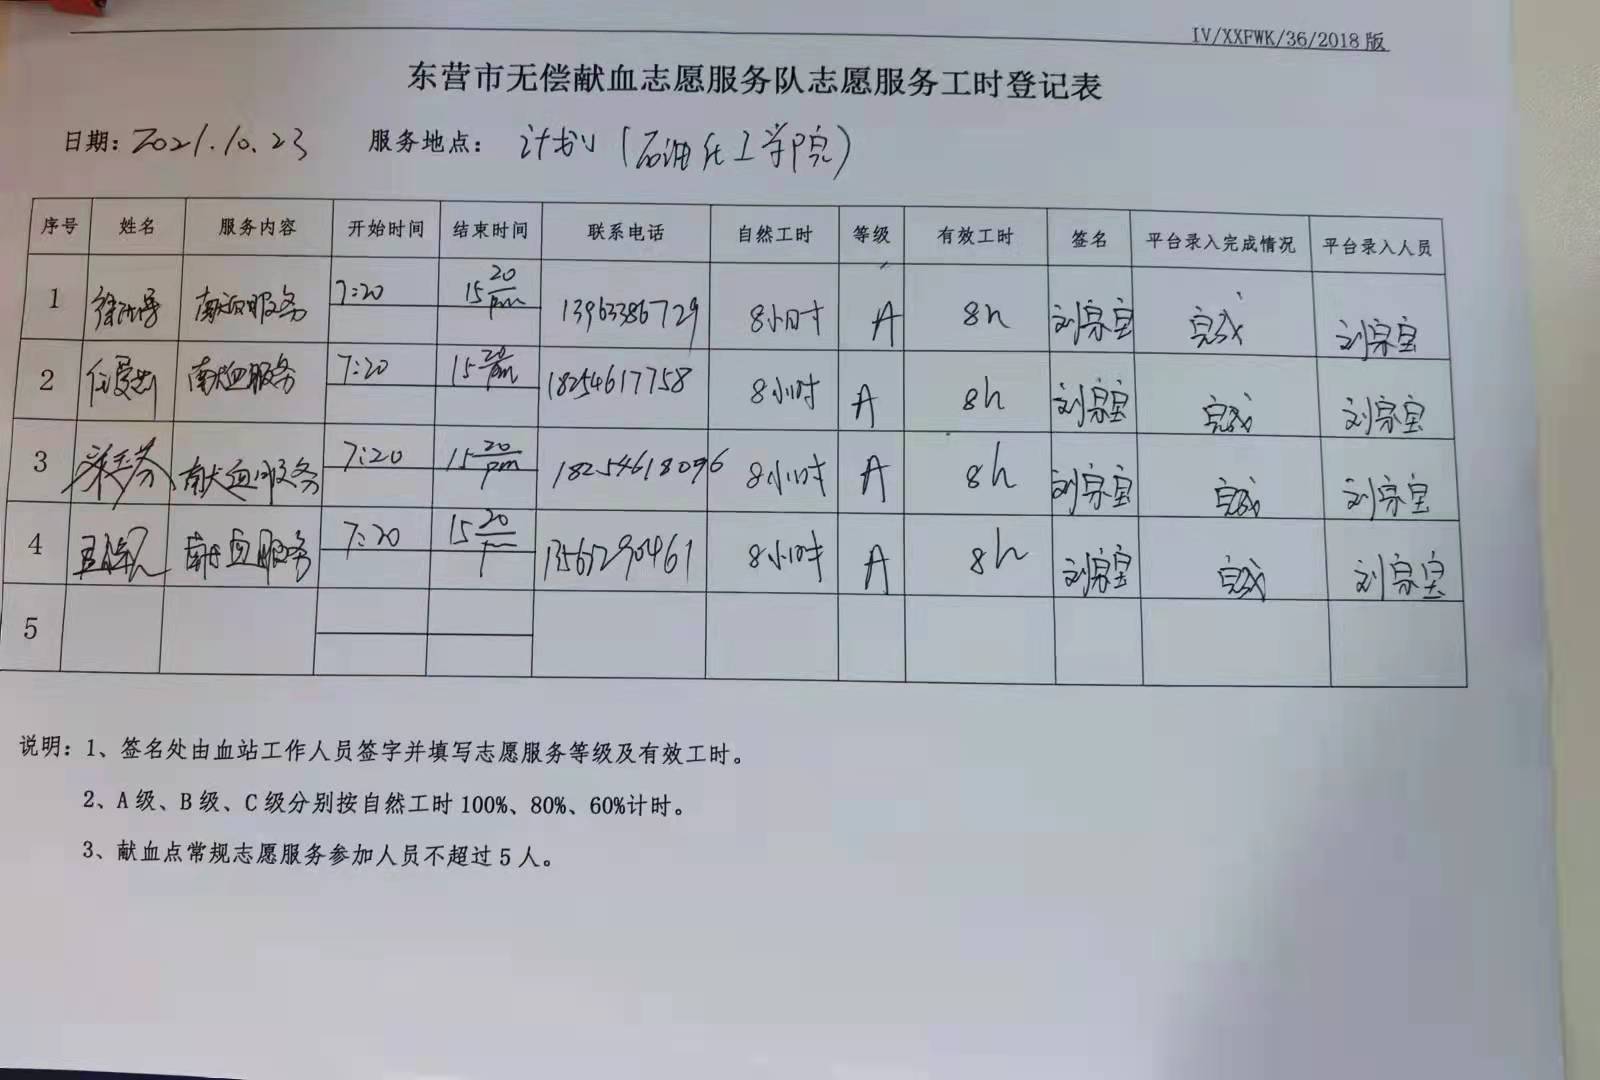 IV/XXFWK/36/2018版
东营市无偿献血志愿服务队志愿服务工时登记表
日期：2021.10.23 服务地点：计划（石油化工学院）
序号 姓名 服务内容 开始时间 结束时间 联系电话 自然工时 等级 有效工时 签名 平台录入完成情况 平台录入人员
1 献血服务 7:20 15 20 pm 13963386729 8小时 A 8h 刘宗宝 完成 刘宗宝
2 献血服务 7:20 15 20 pm 18254617758 8小时 A 8h 刘宗宝 完成 刘宗宝
3 献血服务 7:20 15 20 pm 18254618096 8小时 A 8h 刘宗宝 完成 刘宗宝
4 献血服务 7:20 15 20 8小时 A 8h 刘宗宝 完成 刘宗宝
5
说明：1、签名处由血站工作人员签字并填写志愿服务等级及有效工时。
2、A级、B级、C级分别按自然工时100%、80%、60%计时。
3、献血点常规志愿服务参加人员不超过5人。